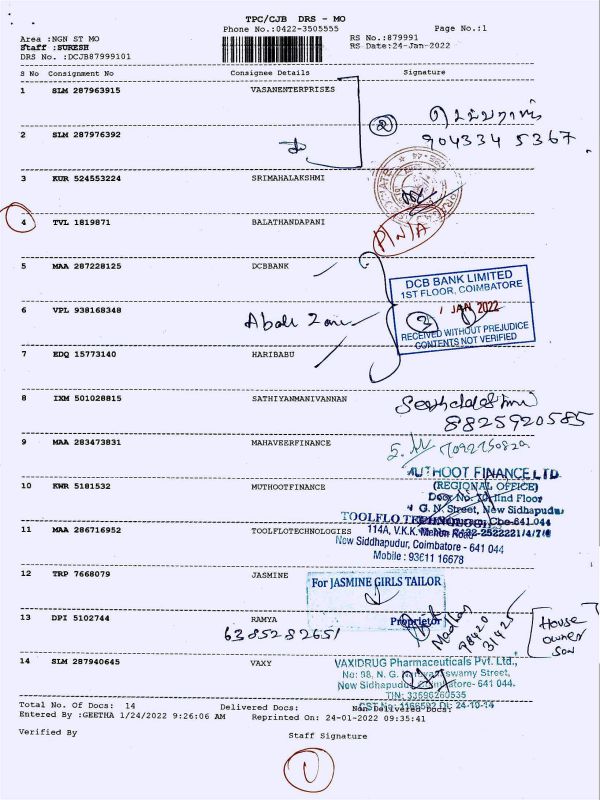 TPC/CJB DRS - MO
Phone No.:0422-3505555
Page No.:1
Area :NGN ST MO
Staff :SURESH
DRS No. :DCJB87999101
RS No.:879991
RS Date:24-Jan-2022
S No Consignment No Consignee Details Signature
1 SLM 287963915 VASANENTERPRISES
2
9043345367
2 SLM 287976392
3 KUR 524553224 SRIMAHALAKSHMI
4 TVL 1819871 BALATHANDAPANI
P/N/A
5 MAA 287228125 DCBBANK
DCB BANK LIMITED
1ST FLOOR, COIMBATORE
JAN 2022
3
RECEIVED WITHOUT PREJUDICE
CONTENTS NOT VERIFIED
6 VPL 938168348
7 EDQ 15773140 HARIBABU
8 IXM 501028815 SATHIYANMANIVANNAN
8825920585
9 MAA 283473831 MAHAVEERFINANCE
10 KWR 5181532 MUTHOOTFINANCE
MUTHOOT FINANCE LTD
(REGIONAL OFFICE)
IInd Floor
G. N. Street, New Sidhapudur
Cbe-641 044
11 MAA 286716952 TOOLFLOTECHNOLOGIES
TOOLFLO TECHNOLOGIES
114A, V.K.K. Menon Road,
New Siddhapudur, Coimbatore - 641 044
Mobile : 93611 16678
12 TRP 7668079 JASMINE
For JASMINE GIRLS TAILOR
Proprietor
13 DPI 5102744 RAMYA
6385282651
Madhav
98420
31425
House
owner
Son
14 SLM 287940645 VAXY
VAXIDRUG Pharmaceuticals Pvt. Ltd.,
No: 98, N. G. Narayanaswamy Street,
New Sidhapudur, Coimbatore- 641 044.
TIN: 33596260535
CST No: 1166592 Dt: 24-10-14
Total No. Of Docs: 14 Delivered Docs: Non Delivered Docs:
Entered By :GEETHA 1/24/2022 9:26:06 AM Reprinted On: 24-01-2022 09:35:41
Verified By Staff Signature
1